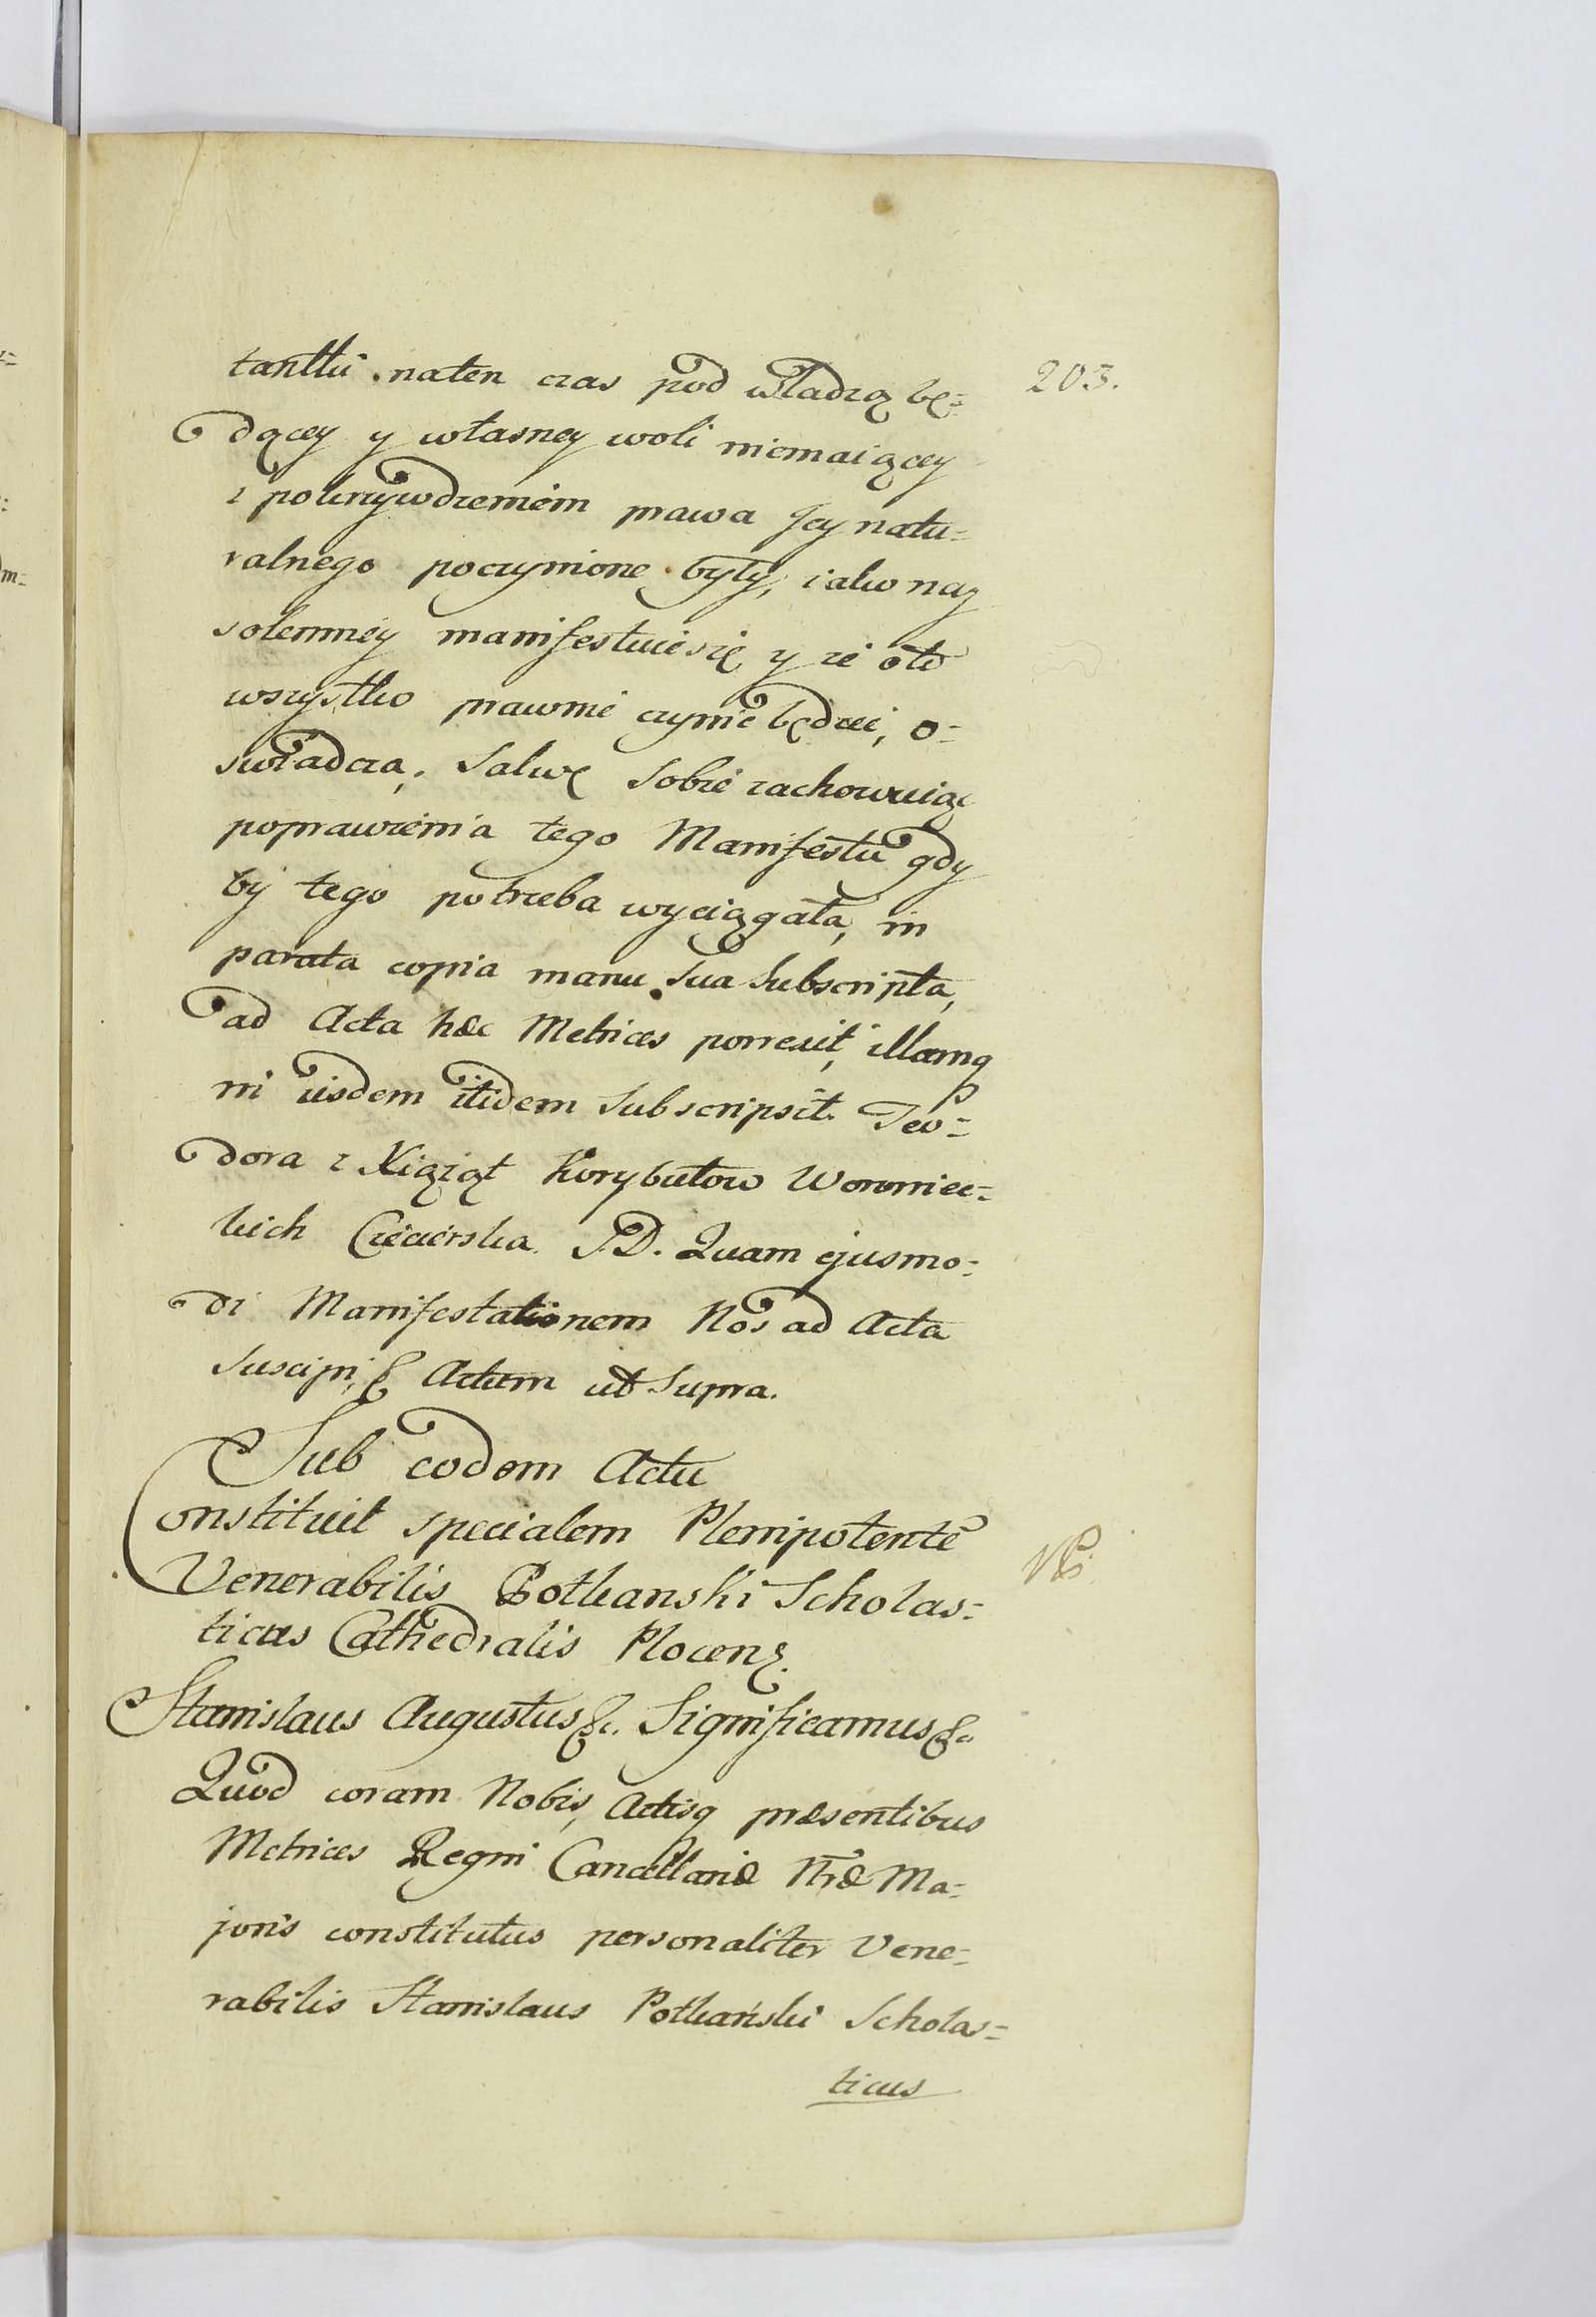 203.
tantki naten czas pod władzą bę=
dącey y własney woli niemaiącey
z pokrzywdzeniem prawa Jey natu=
ralnego poczynione były, iako nay
solenniey manifestuie się y że oto
wszystko prawnie czynić będzie, o=
swiadcza, Salwę sobie zachowuiąc
poprawienia tego Manifestu gdy
by tego potrzeba wyciągała, in
parata copia manu sua subscripta,
ad Acta hæc Metrices porrexit, illamq
in iisdem itidem subscripsit. Teo=
dora z Xiążąt Korybutow Woroniec=
kich Ciecierska. P.D. Quam ejusmo=
di Manifestationem Nos ad Acta
suscipi, & Actum ut supra.
Sub eodem Actu
Constituit specialem Plenipotentē
Venerabilis Potkanski Scholas=
ticus Cathedralis Plocens.
Stanislaus Augustus &c. Significamus &c.
Quod coram Nobis, Actisq præsentibus
Metrices Regni Cancellariæ Nræ Ma=
joris constitutus personaliter Vene=
rabilis Stanislaus Potkański Scholas=
ticus